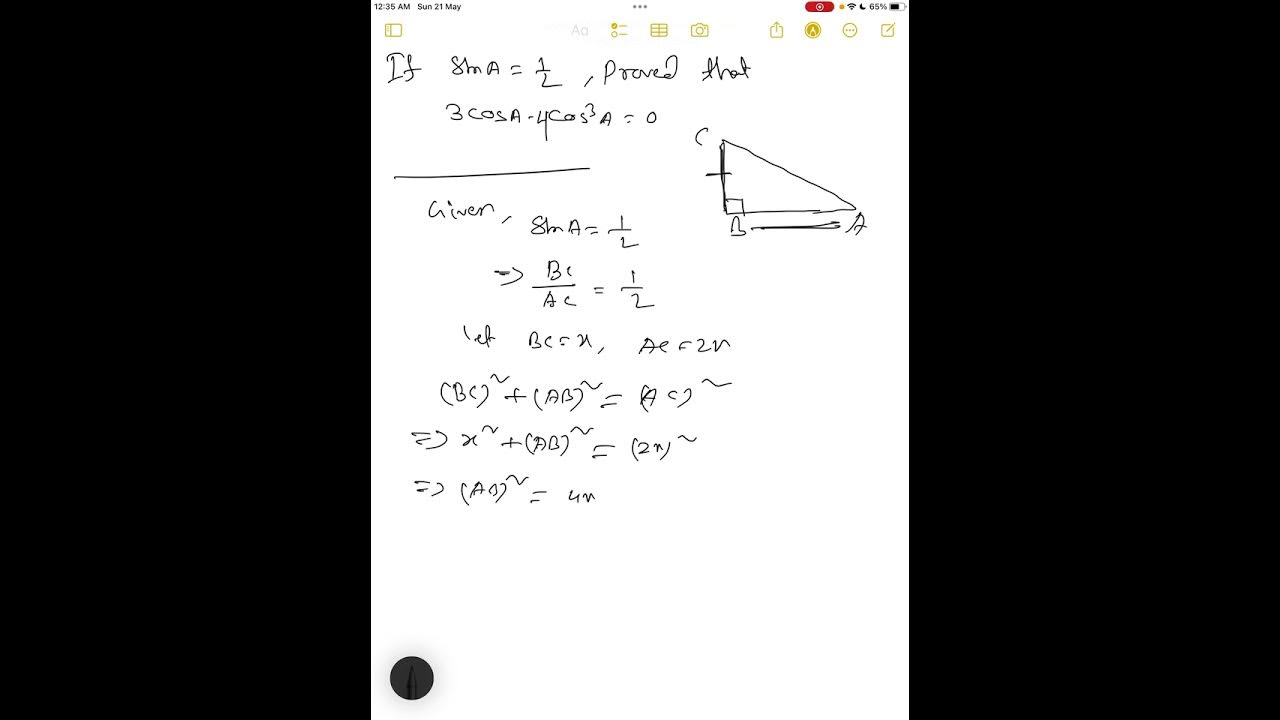 12:35 AM Sun 21 May 65%
Aa
If sinA = 1/2, proved that
3cosA - 4cos³A = 0
C
B A
Given, sinA = 1/2
=> BC/AC = 1/2
let BC = x, AC = 2x
(BC)~ + (AB)~ = (AC)~
=> x~ + (AB)~ = (2x)~
=> (AB)~ = 4x